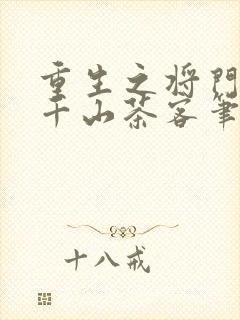 重生之将门
千山茶客笔
十八戒